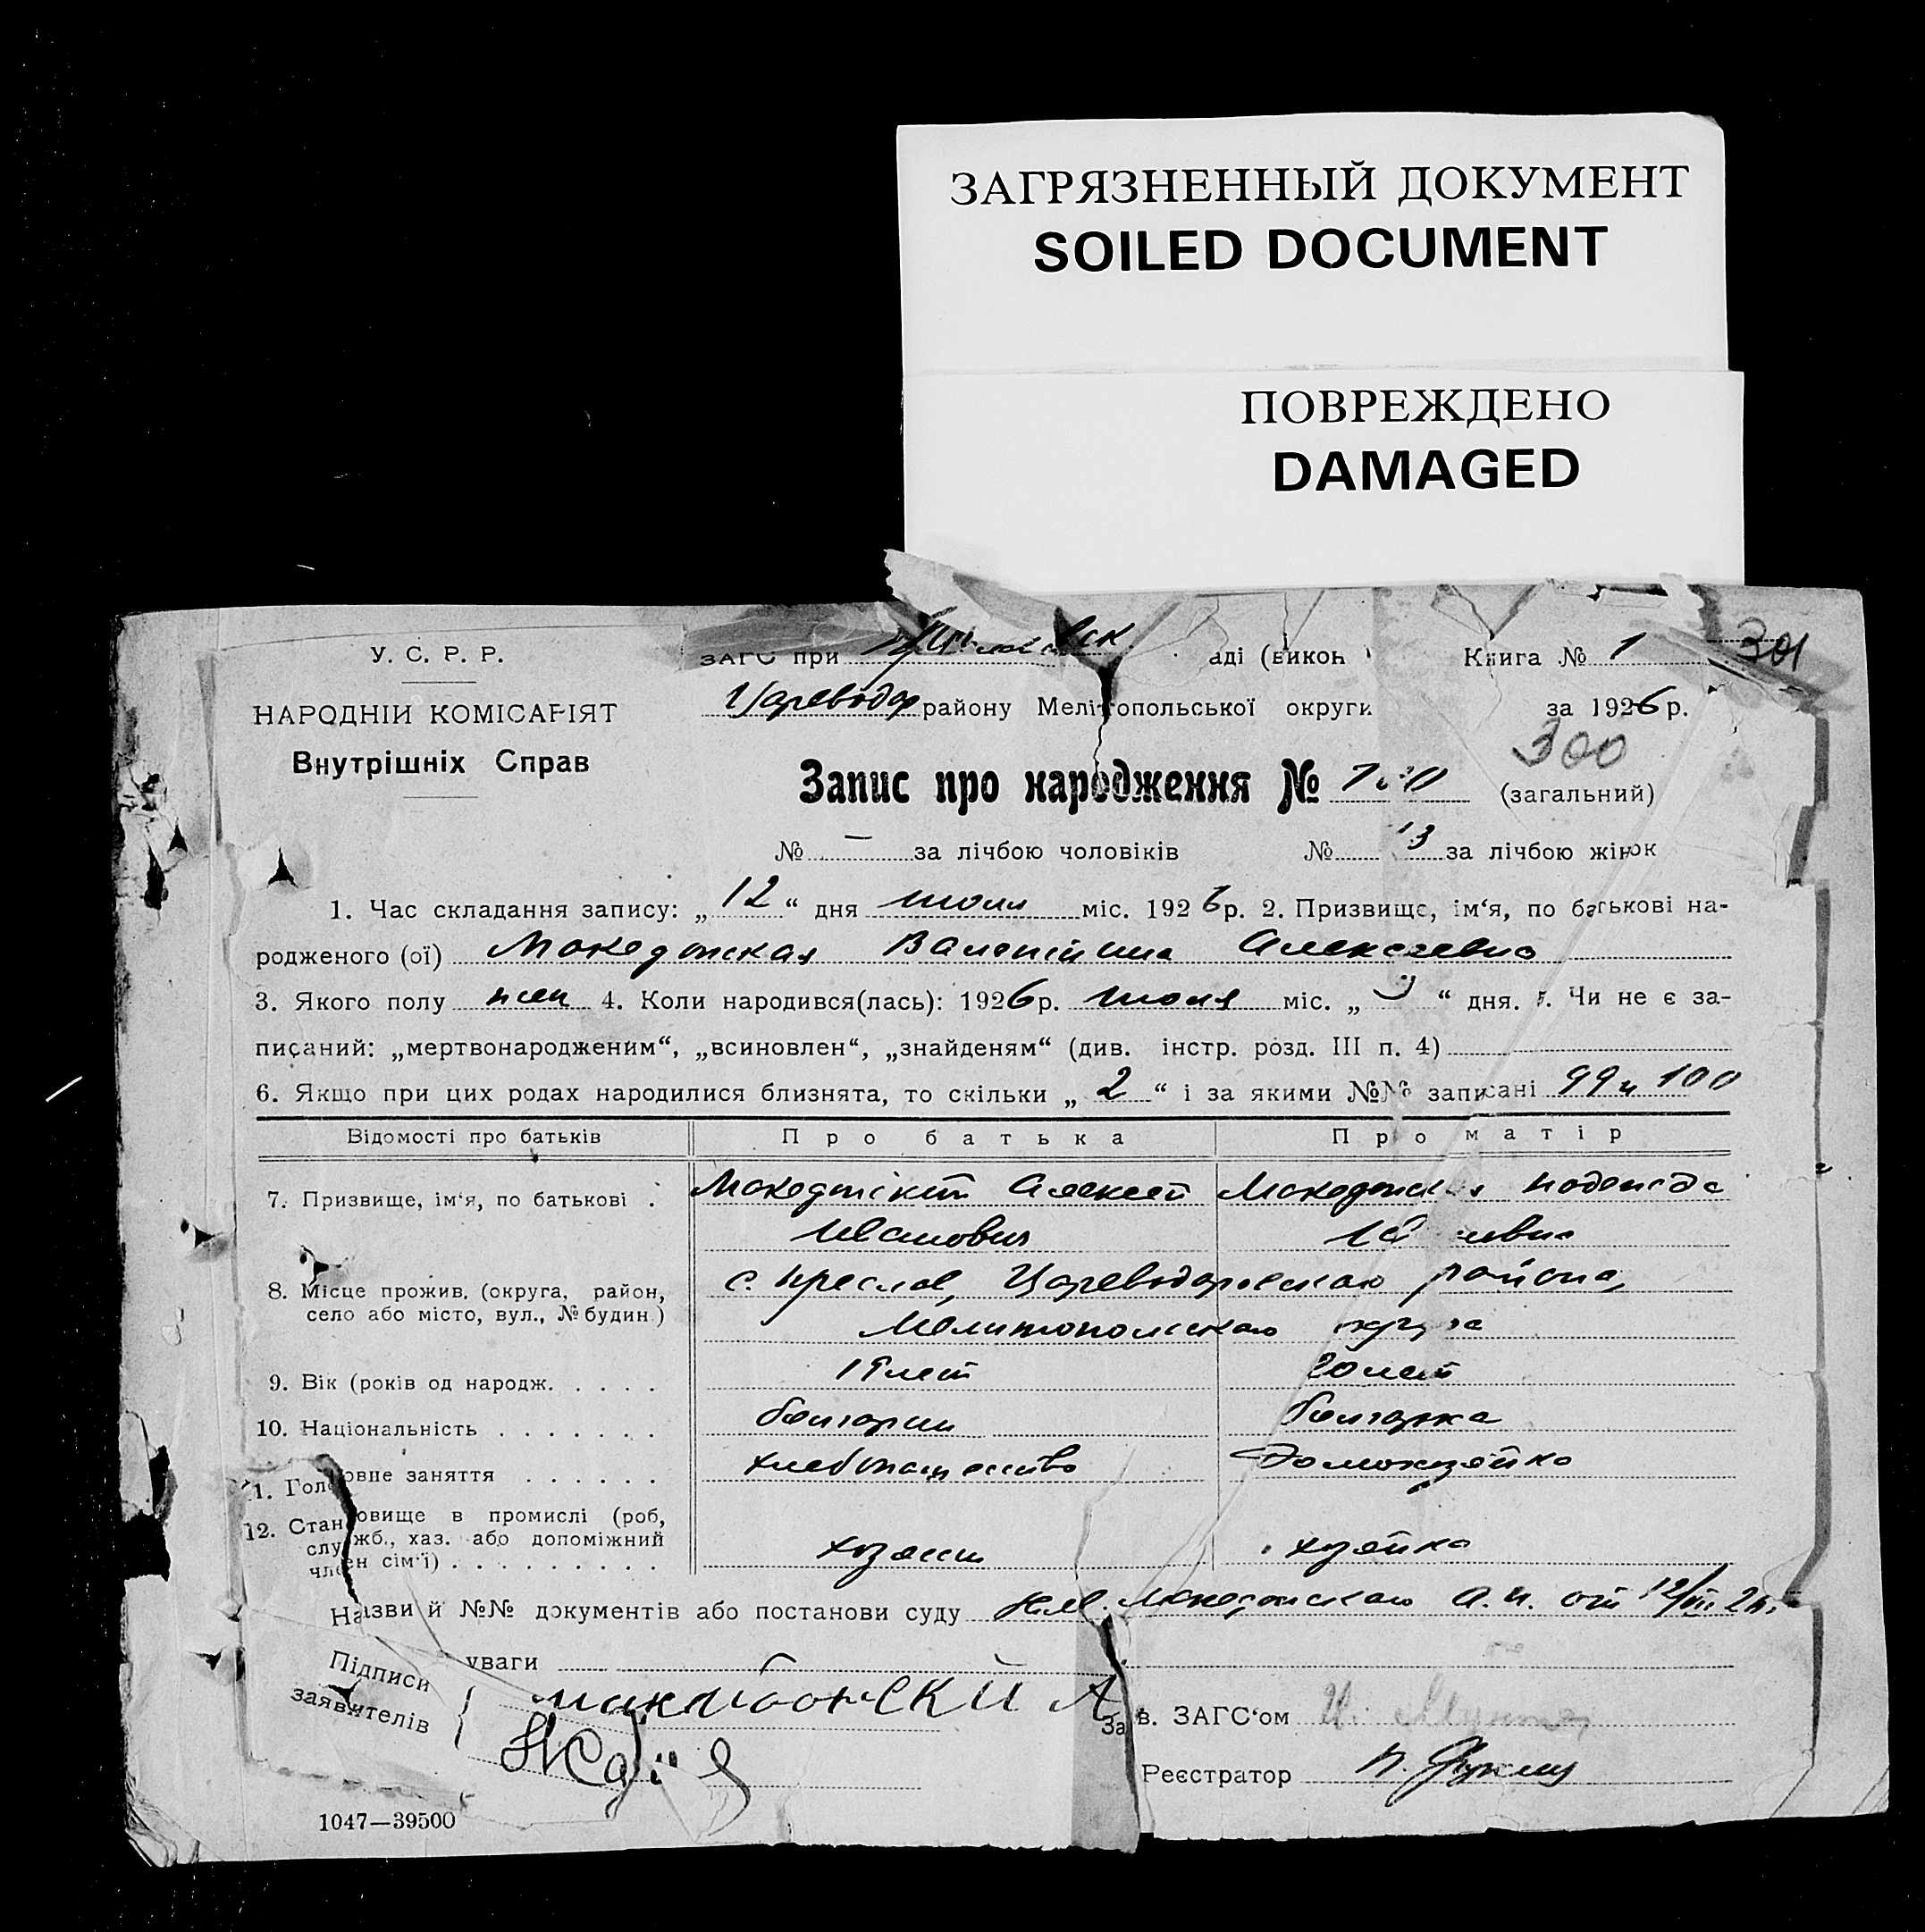 ЗАГРЯЗНЕННЫЙ ДОКУМЕНТ
SOILED DOCUMENT
ПОВРЕЖДЕНО
DAMAGED
У. С. Р. Р.
НАРОДНІЙ КОМІСАРІЯТ
Внутрішніх Справ
ЗАГС при аді (викон Книга № 1 301
Цареводар району Мелітопольської округи за 1926 р.
300
Запис про народження № (загальний)
№ — за лічбою чоловіків № 13 за лічбою жінок
1. Час складання запису: „ 12 “ дня июля міс. 1926 р. 2. Призвище, ім‘я, по батькові на-
родженого (ої) Македонская Валентина Алексеевна
3. Якого полу жен 4. Коли народився(лась): 1926 р. июля міс. „ “ дня. 5. Чи не є за-
писаний: „мертвонародженим“, „всиновлен“, „знайденям“ (див. інстр. розд. III п. 4)
6. Якщо при цих родах народилися близнята, то скільки „ 2 “ і за якими №№ записані 99 и 100
Відомості про батьків Про батька Про матір
7. Призвище, ім‘я, по батькові . Македонский Алексей Македонская Надежда
Иванович
8. Місце прожив. (округа, район, село або місто, вул., № будин.) с. Преслав, Цареводаровскаго района,
Мелитопольскаго округа
9. Вік (років од народж. . . . . 19 лет 20 лет
10. Національність . . . . . . . болгарин болгарка
11. Головне заняття . . . . . . хлебопашество Домохозяйка
12. Становище в промислі (роб, службб., хаз. або допоміжний член сім‘ї) . . . . . . . . . хозяин хозяйка
Назви й №№ документів або постанови суду Македонскаго А. И. от 12/VII 26 г.
уваги
Підписи
заявителів
македонский А
Зав. ЗАГС‘ом
Реєстратор
1047—39500